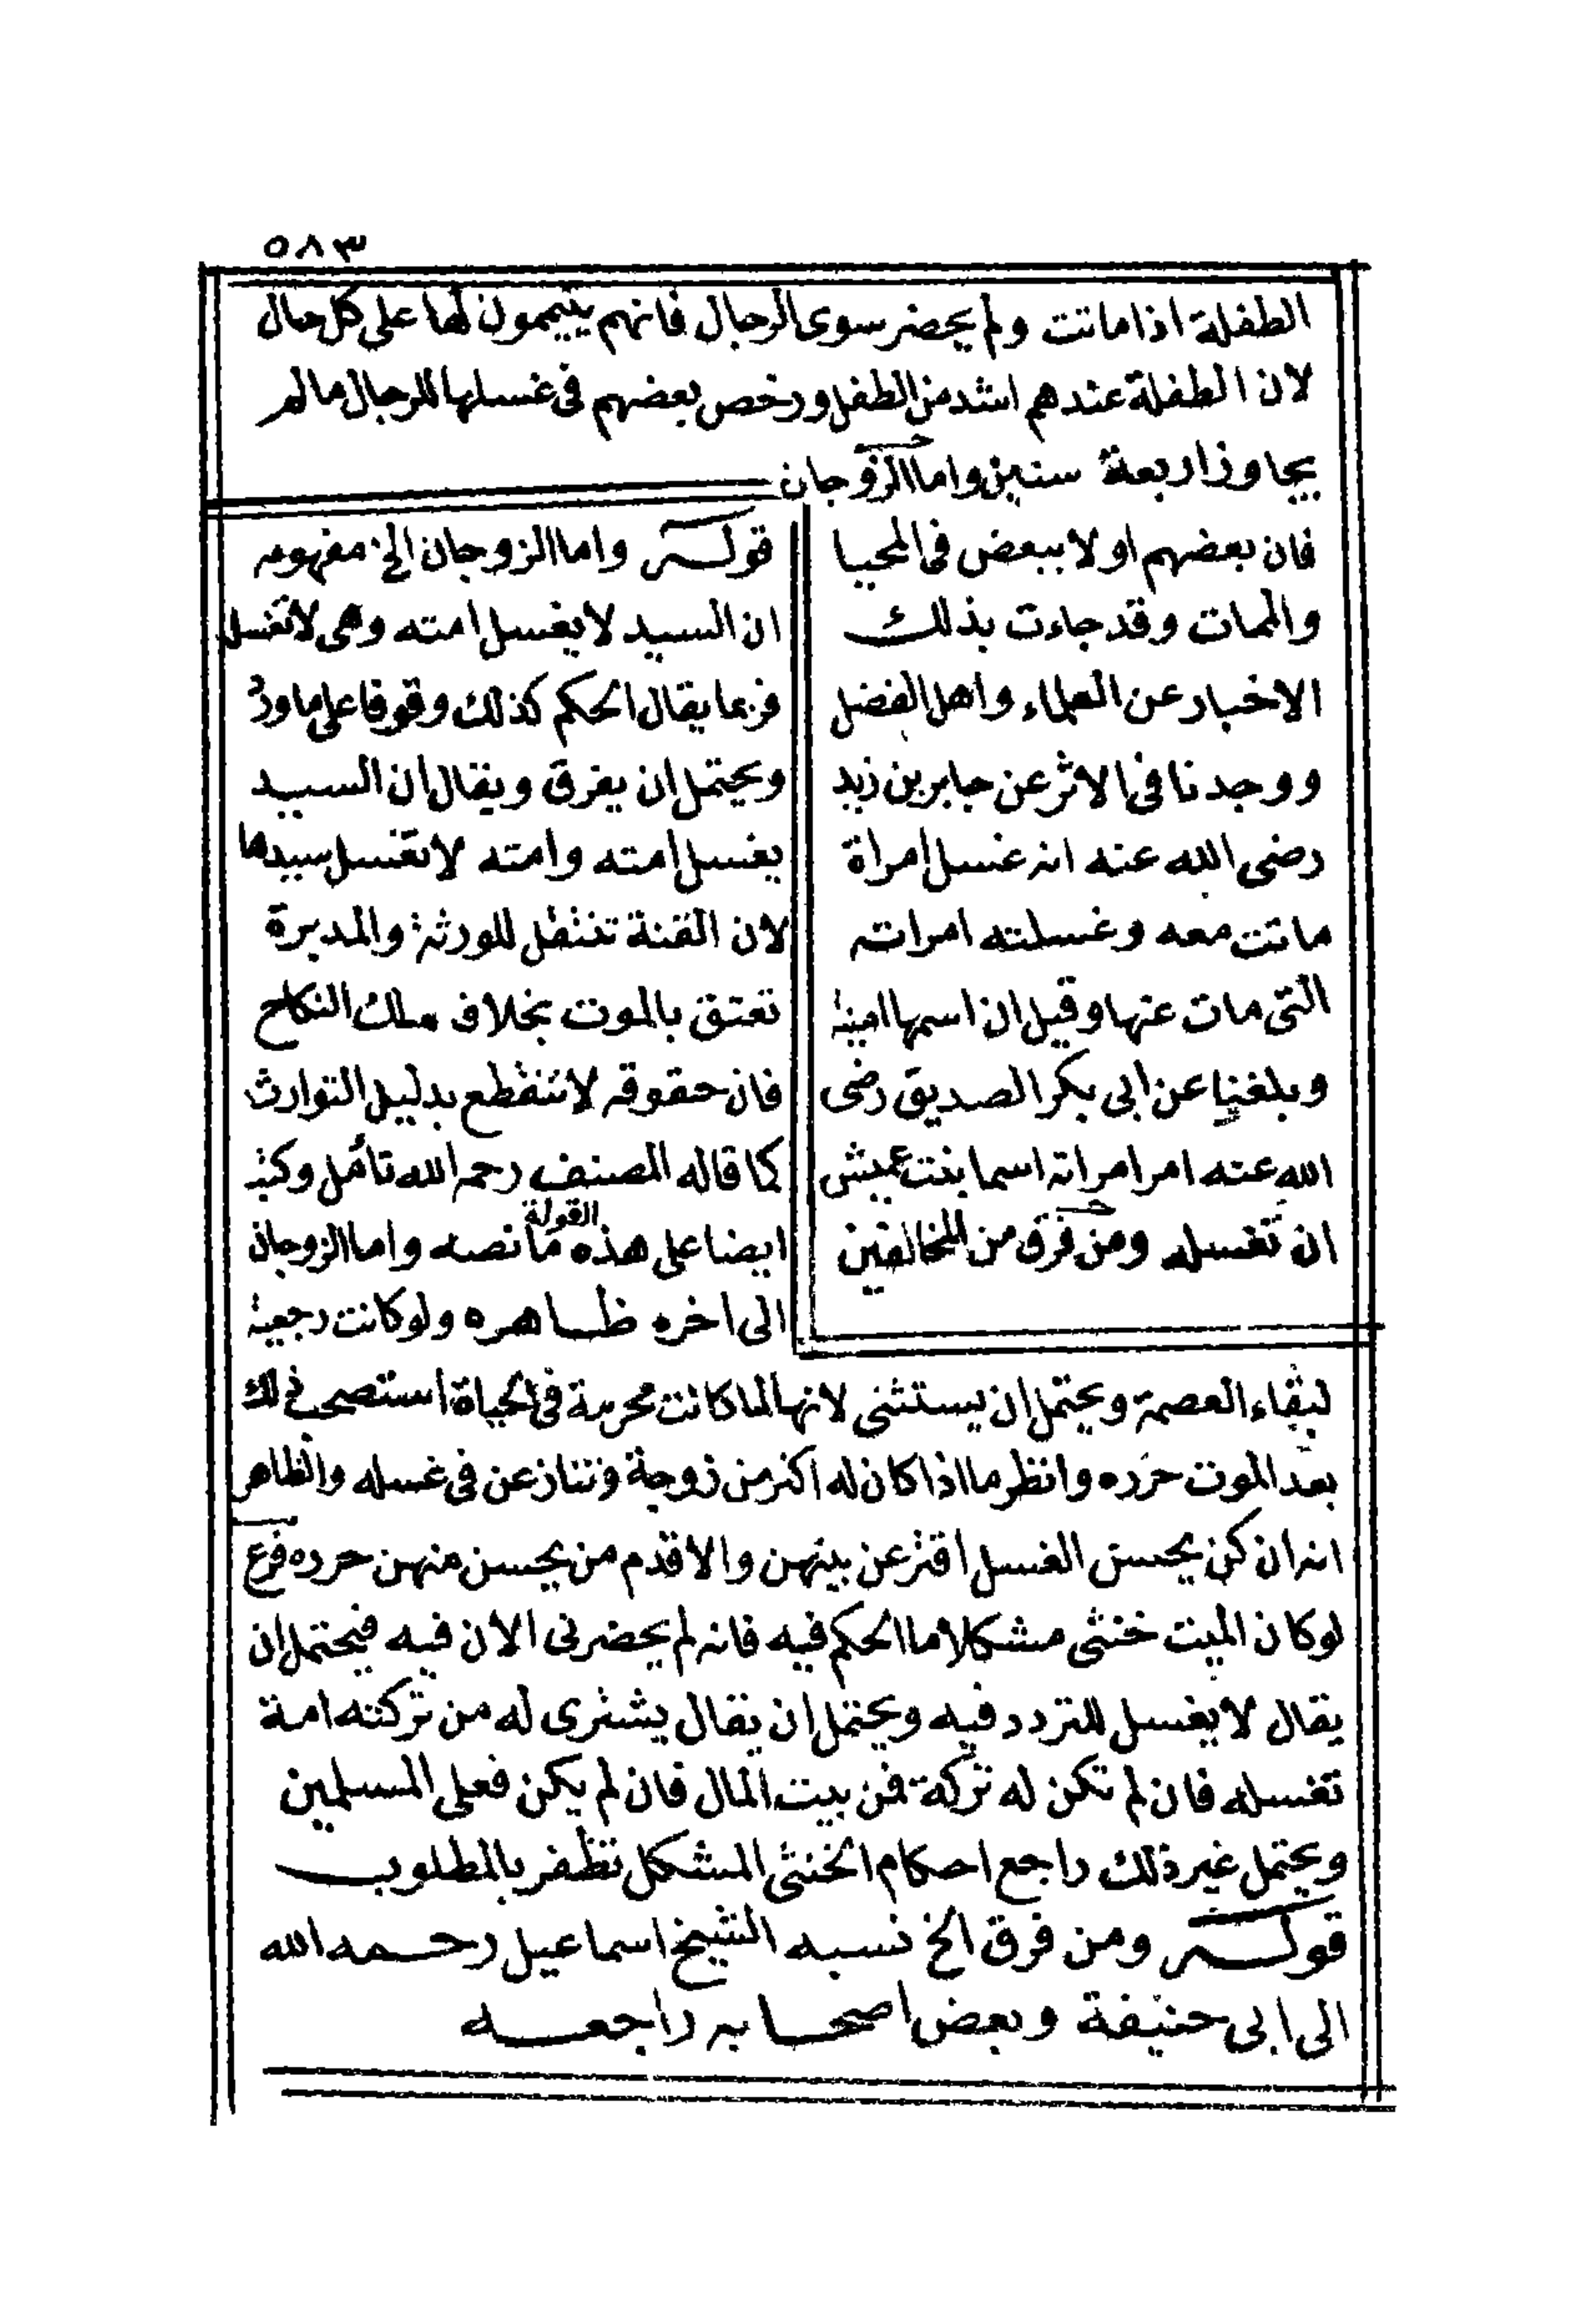 ٥٨٣
الطفلة اذا ماتت ولم يحضر سوى الرجال فانهم ييممون لها على كل حال
لان الطفلة عندهم اشد من الطفل ورخص بعضهم فى غسلها للرجال مالم
يجاوز اربعة سنين واما الزوجان
فان بعضهم اولا ببعض فى المحيا
والممات وقد جاءت بذلك
الاخبار عن العلماء واهل الفضل
ووجدنا فى الاثر عن جابر بن زيد
رضى الله عنه انه غسل امراة
ماتت معه وغسلته امراته
التى مات عنها وقيل ان اسمها امينة
وبلغنا عن ابى بكر الصديق رضى
الله عنه امر امراته اسما بنت عميش
ان تغسله ومن فرق من المخالفين
قوله واما الزوجان الخ مفهومه
ان السيد لا يغسل امته وهى لا تغسل
فربما يقال الحكم كذلك وقوفا على ماورد
ويحتمل ان يفرق ويقال ان السيد
يغسل امته وامته لا تغسل سيدها
لان القنة تنتقل للورثة والمدبرة
تعتق بالموت بخلاف ملك النكاح
فان حقوقه لا تنقطع بدليل التوارث
كما قاله المصنف رحمه الله تأمل وكتب
ايضا على هذه القولة ما نصه واما الزوجان
الى اخره ظاهره ولو كانت رجعية
لبقاء العصمة ويحتمل ان يستثنى لانها لما كانت محرمة فى الحياة استصحب ذلك
بعد الموت حرره وانظر ما اذا كان له اكثر من زوجة وتنازعن فى غسله والظاهر
انه ان كن يحسن الغسل اقترعن بينهن والا قدم من يحسن منهن حرره فرع
لو كان الميت خنثى مشكلا ما الحكم فيه فانه لم يحضرنى الان فيه فيحتمل ان
يقال لا يغسل للتردد فيه ويحتمل ان يقال يشترى له من تركته امة
تغسله فان لم تكن له تركة فمن بيت المال فان لم يكن فعلى المسلمين
ويحتمل غير ذلك راجع احكام الخنثى المشكل تظفر بالمطلوب
قوله ومن فرق الخ نسبه الشيخ اسماعيل رحمه الله
الى ابى حنيفة وبعض اصحابه راجعه